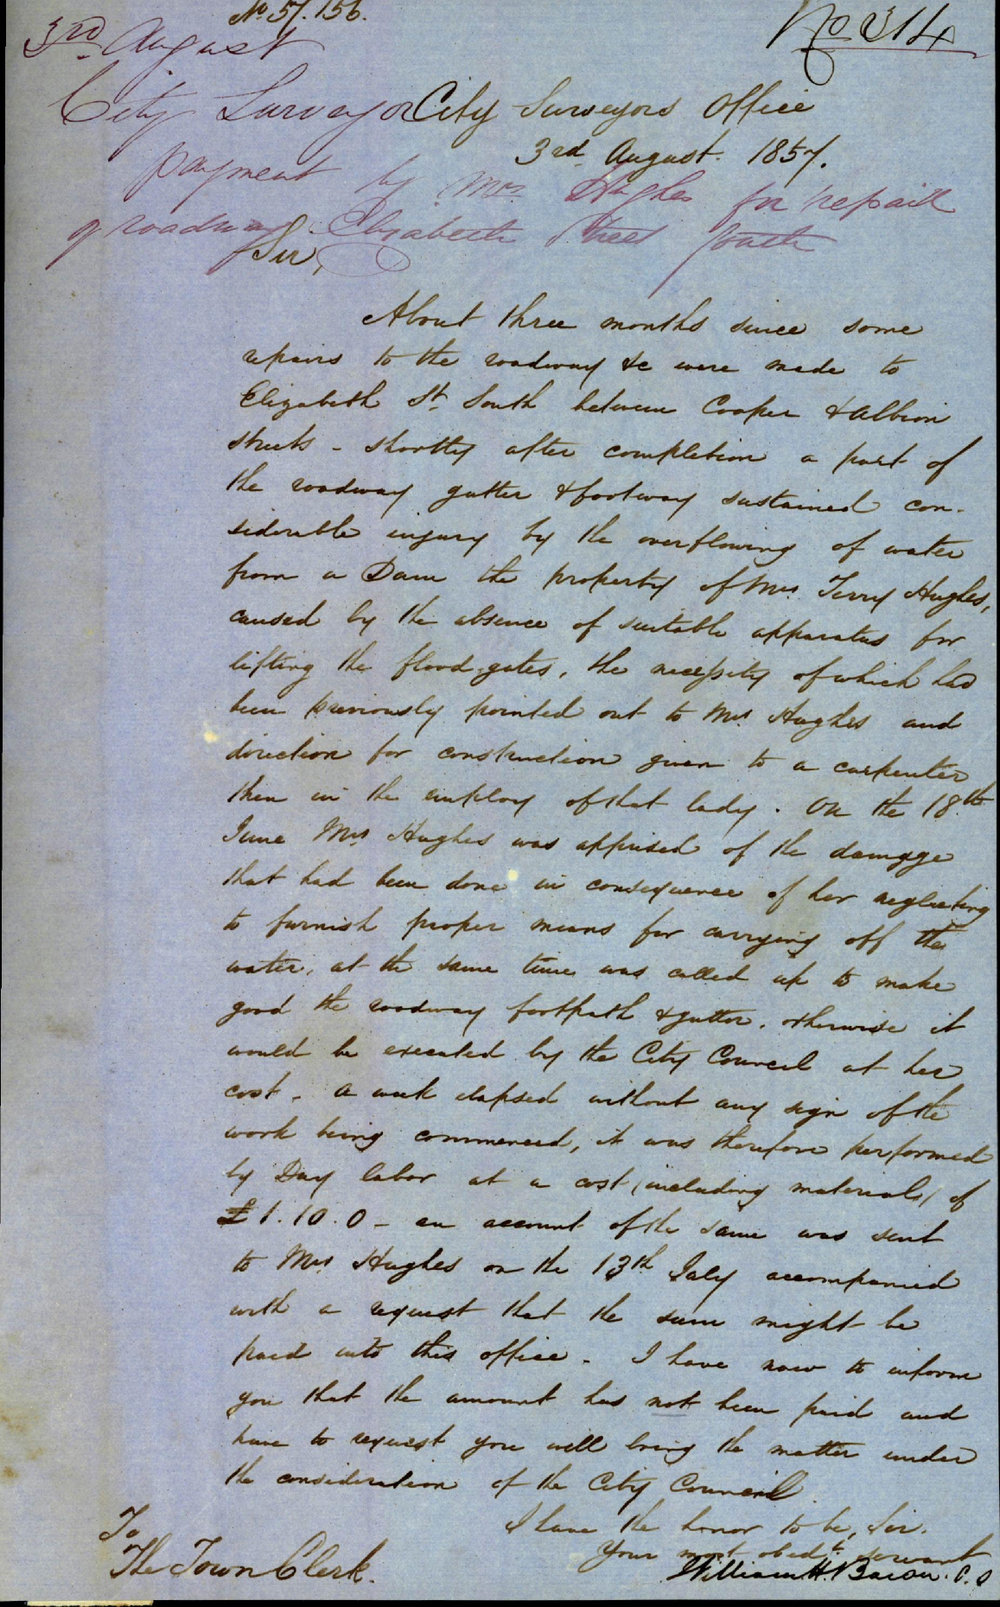 No 57.156.
No 314
3rd August
City Surveyor
payment by Mrs Hughes for repair
of roadway Elizabeth Street South
City Surveyors Office
3rd August. 1857.
Sir,
About three months since some
repairs to the roadway &c were made to
Elizabeth St South between Cooper & Albion
streets - shortly after completion a part of
the roadway gutter & footway sustained con-
siderable injury by the overflowing of water
from a Dam the property of Mrs Terry Hughes,
caused by the absence of suitable apparatus for
lifting the flood-gates, the necessity of which had
been previously pointed out to Mrs Hughes and
direction for construction given to a carpenter
then in the employ of that lady. On the 18th
June Mrs Hughes was apprised of the damage
that had been done in consequence of her neglecting
to furnish proper means for carrying off the
water, at the same time was called up to make
good the roadway footpath & gutter, otherwise it
would be executed by the City Council at her
cost. A week elapsed without any sign of the
work being commenced, it was therefore performed
by Day labor at a cost (including materials) of
£1.10.0 - an account of the same was sent
to Mrs Hughes on the 13th July accompanied
with a request that the sum might be
paid into this office. I have now to inform
you that the amount has not been paid and
have to request you will bring the matter under
the consideration of the City Council
I have the honor to be, Sir,
Your most obedt servant
William H. Bacon. C.S
To
The Town Clerk.